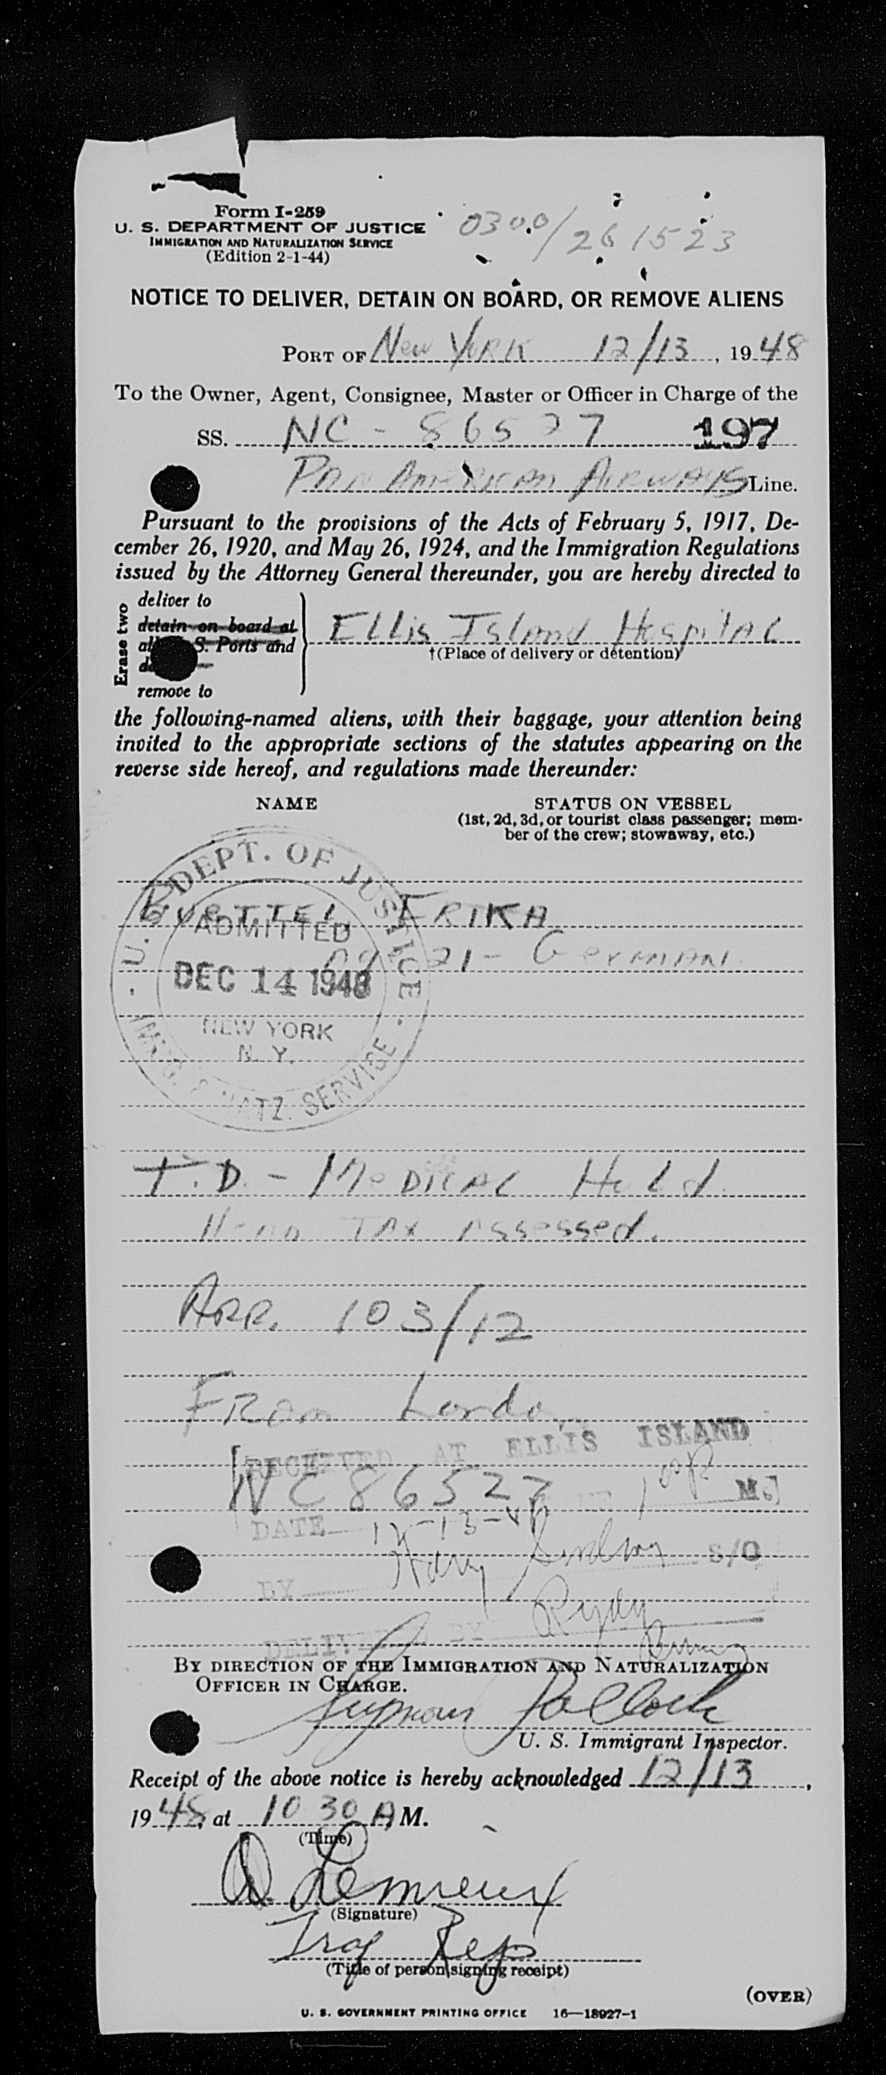 Form I-259
U. S. DEPARTMENT OF JUSTICE
IMMIGRATION AND NATURALIZATION SERVICE
(Edition 2-1-44)
0300/261523
NOTICE TO DELIVER, DETAIN ON BOARD, OR REMOVE ALIENS
PORT OF New York 12/13, 1948
To the Owner, Agent, Consignee, Master or Officer in Charge of the
SS. NC - 86527 197
Pan American Airways Line.
Pursuant to the provisions of the Acts of February 5, 1917, De-
cember 26, 1920, and May 26, 1924, and the Immigration Regulations
issued by the Attorney General thereunder, you are hereby directed to
Erase two
deliver to
detain on board at
S. Ports and
remove to
Ellis Island Hospital
†(Place of delivery or detention)
the following-named aliens, with their baggage, your attention being
invited to the appropriate sections of the statutes appearing on the
reverse side hereof, and regulations made thereunder:
NAME
STATUS ON VESSEL
(1st, 2d, 3d, or tourist class passenger; mem-
ber of the crew; stowaway, etc.)
U. S. DEPT. OF JUSTICE
ERIKA
ADMITTED
21 - German
DEC 14 1948
NEW YORK
N. Y.
NATZ. SERVICE
T.D. - Medical Hold
Head Tax Assessed.
Arr. 103/12
From London
RECEIVED AT ELLIS ISLAND
NC 86527 M.
DATE 12-13-48
BY Harry S/O
DELIVERED BY
BY DIRECTION OF THE IMMIGRATION AND NATURALIZATION
OFFICER IN CHARGE.
Seymour Pollock
U. S. Immigrant Inspector.
Receipt of the above notice is hereby acknowledged 12/13,
1948, at 10 30 A M.
(Time)
A. Lemieux
(Signature)
Rep
(Title of person signing receipt)
(OVER)
U. S. GOVERNMENT PRINTING OFFICE 16—18927-1